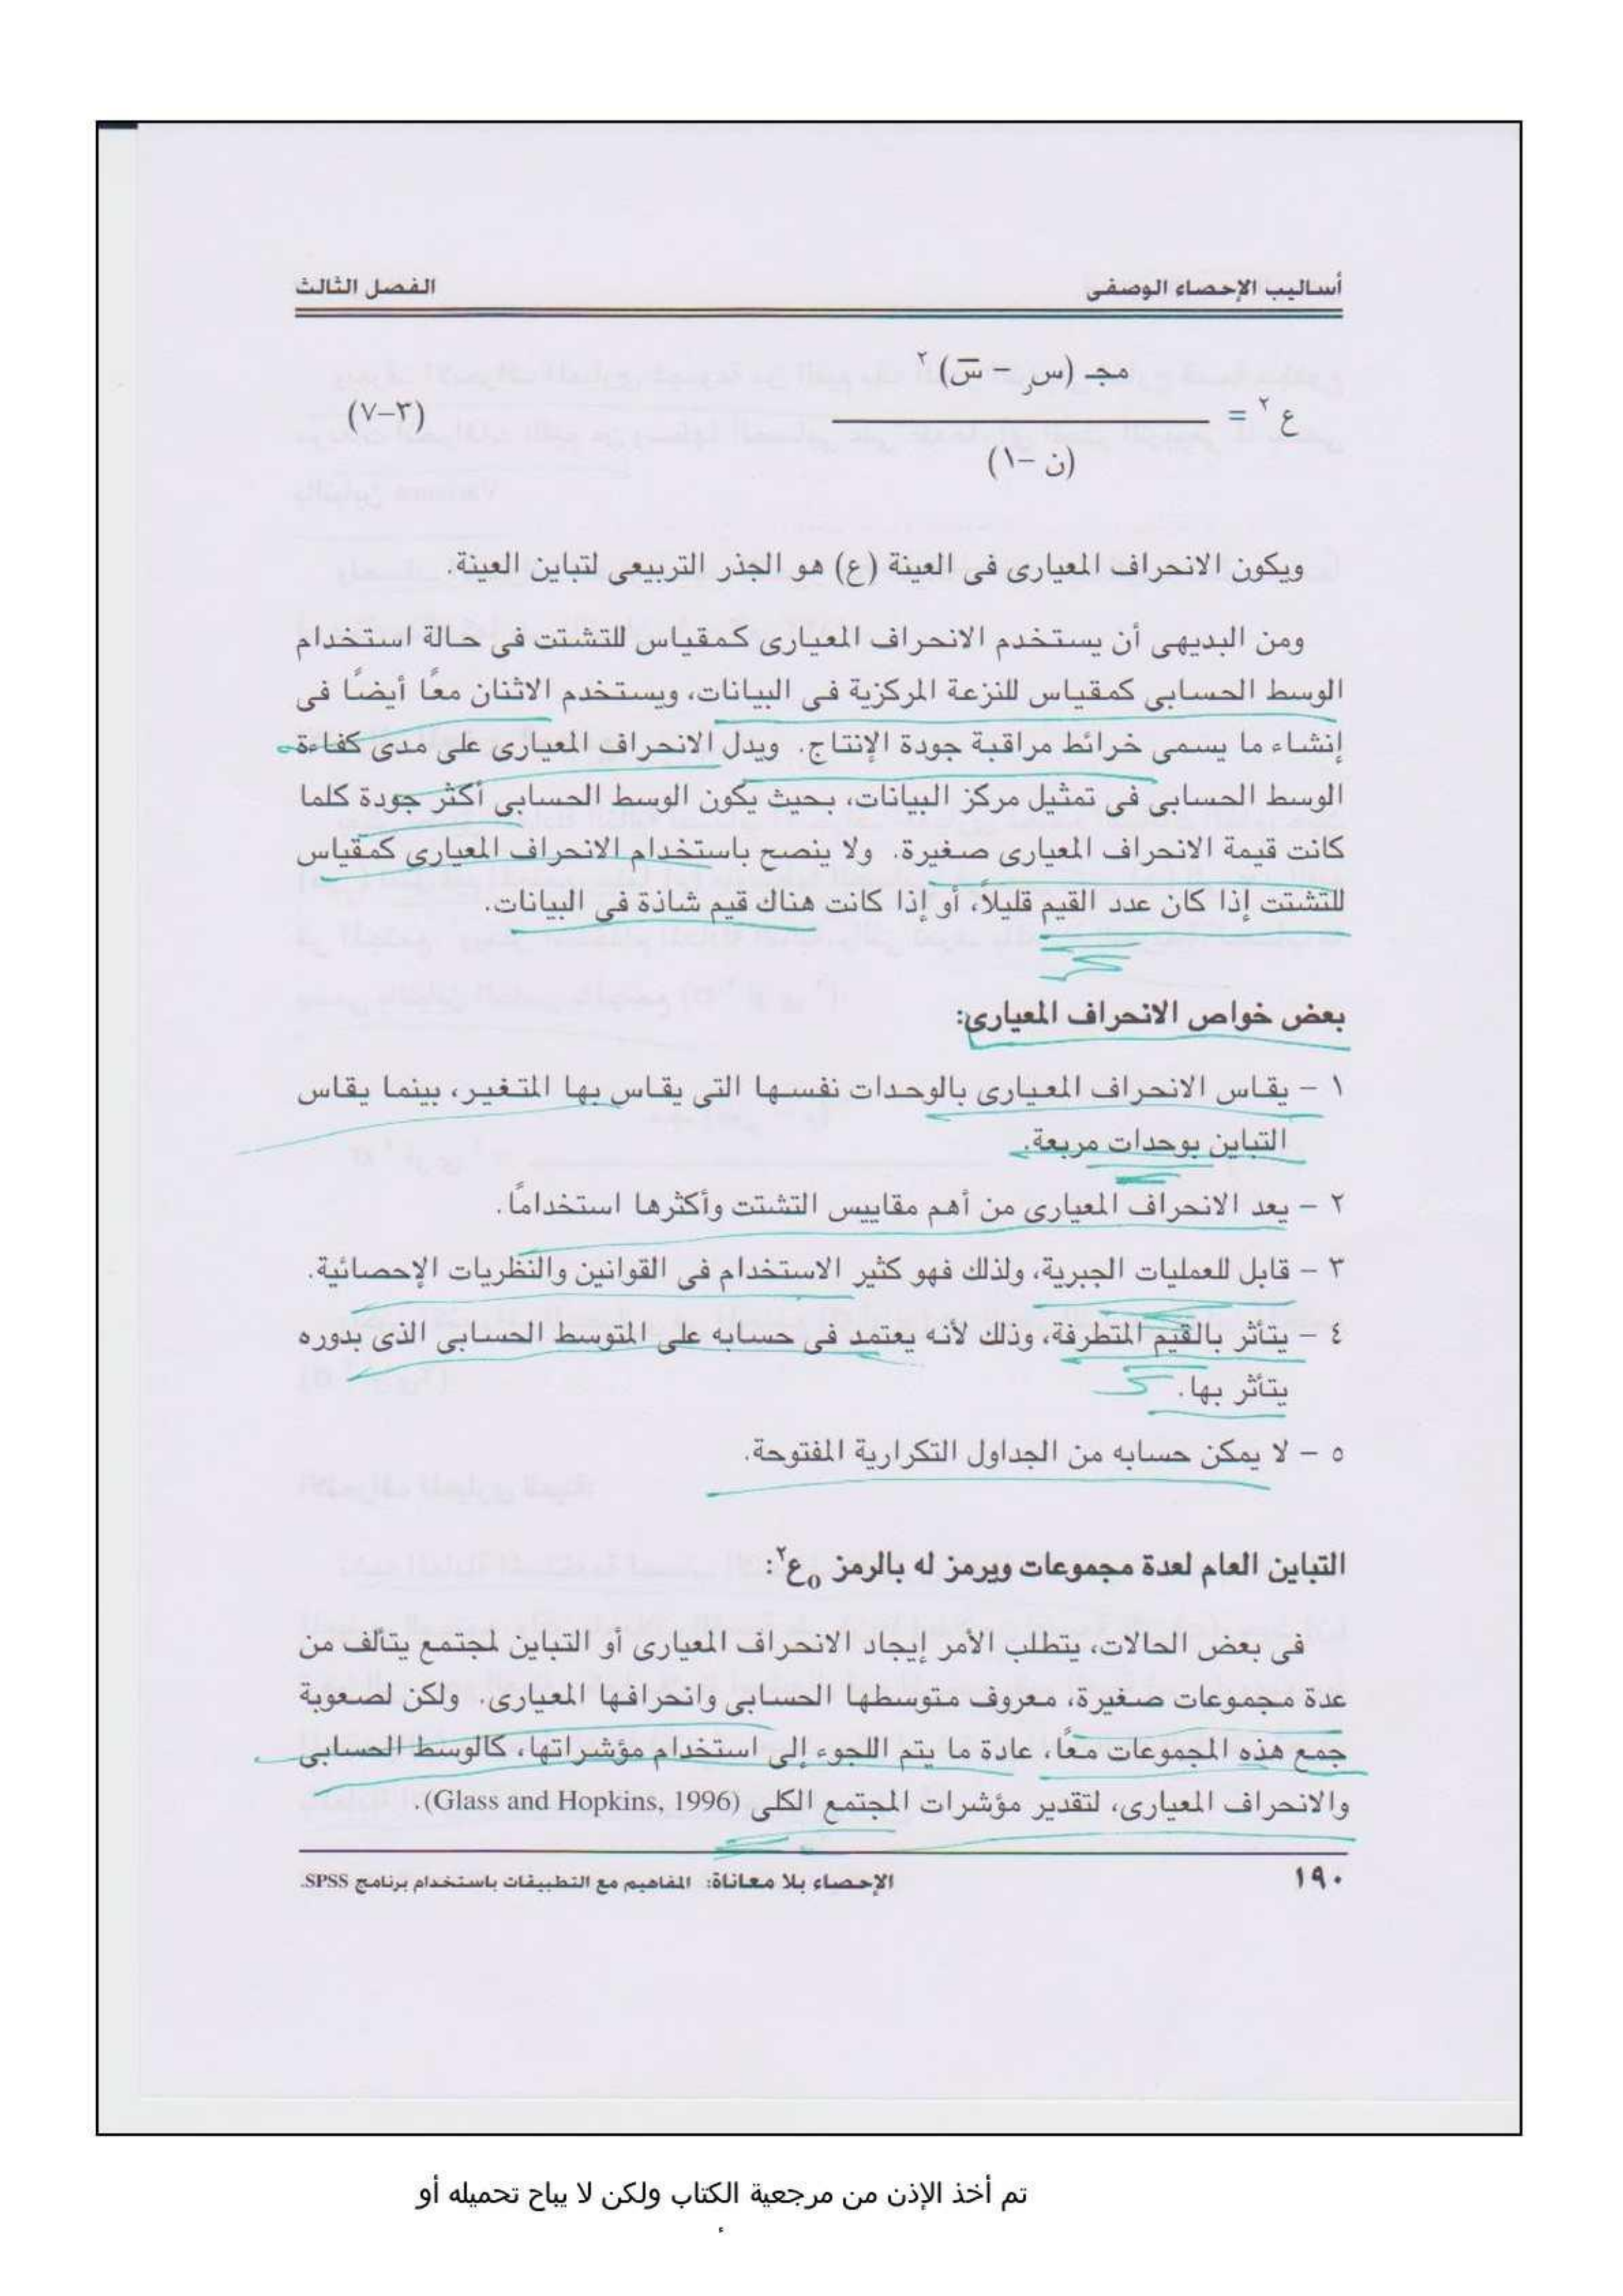 أساليب الإحصاء الوصفى
الفصل الثالث
مجـ (س ر – س̅) ٢
ع ٢ =
(٣–٧)
(ن –١)
ويكون الانحراف المعيارى فى العينة (ع) هو الجذر التربيعى لتباين العينة.
ومن البديهى أن يستخدم الانحراف المعيارى كمقياس للتشتت فى حالة استخدام
الوسط الحسابى كمقياس للنزعة المركزية فى البيانات، ويستخدم الاثنان معًا أيضًا فى
إنشاء ما يسمى خرائط مراقبة جودة الإنتاج. ويدل الانحراف المعيارى على مدى كفاءة
الوسط الحسابى فى تمثيل مركز البيانات، بحيث يكون الوسط الحسابى أكثر جودة كلما
كانت قيمة الانحراف المعيارى صغيرة. ولا ينصح باستخدام الانحراف المعيارى كمقياس
للتشتت إذا كان عدد القيم قليلاً، أو إذا كانت هناك قيم شاذة فى البيانات.
بعض خواص الانحراف المعيارى:
١ – يقاس الانحراف المعيارى بالوحدات نفسها التى يقاس بها المتغير، بينما يقاس
التباين بوحدات مربعة.
٢ – يعد الانحراف المعيارى من أهم مقاييس التشتت وأكثرها استخدامًا.
٣ – قابل للعمليات الجبرية، ولذلك فهو كثير الاستخدام فى القوانين والنظريات الإحصائية.
٤ – يتأثر بالقيم المتطرفة، وذلك لأنه يعتمد فى حسابه على المتوسط الحسابى الذى بدوره
يتأثر بها.
٥ – لا يمكن حسابه من الجداول التكرارية المفتوحة.
التباين العام لعدة مجموعات ويرمز له بالرمز ₀ع٢:
فى بعض الحالات، يتطلب الأمر إيجاد الانحراف المعيارى أو التباين لمجتمع يتألف من
عدة مجموعات صغيرة، معروف متوسطها الحسابى وانحرافها المعيارى. ولكن لصعوبة
جمع هذه المجموعات معًا، عادة ما يتم اللجوء إلى استخدام مؤشراتها، كالوسط الحسابى
والانحراف المعيارى، لتقدير مؤشرات المجتمع الكلى (Glass and Hopkins, 1996).
١٩٠
الإحصاء بلا معاناة: المفاهيم مع التطبيقات باستخدام برنامج SPSS
تم أخذ الإذن من مرجعية الكتاب ولكن لا يباح تحميله أو